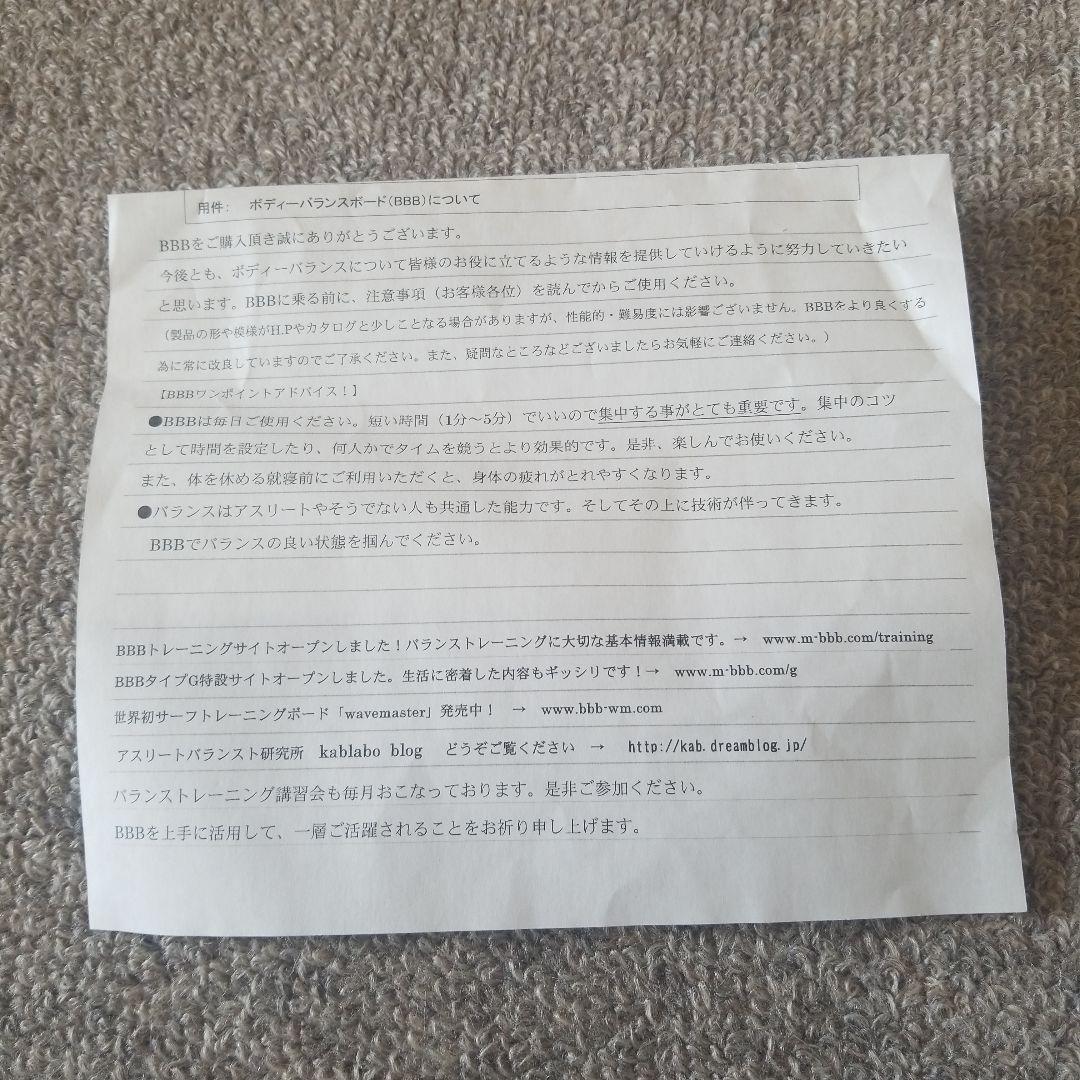 用件： ボディーバランスボード（BBB）について
BBBをご購入頂き誠にありがとうございます。
今後とも、ボディーバランスについて皆様のお役に立てるような情報を提供していけるように努力していきたい
と思います。BBBに乗る前に、注意事項（お客様各位）を読んでからご使用ください。
（製品の形や模様がH.Pやカタログと少しことなる場合がありますが、性能的・難易度には影響ございません。BBBをより良くする
為に常に改良していますのでご了承ください。また、疑問なところなどございましたらお気軽にご連絡ください。）
【BBBワンポイントアドバイス！】
●BBBは毎日ご使用ください。短い時間（1分～5分）でいいので集中する事がとても重要です。集中のコツ
として時間を設定したり、何人かでタイムを競うとより効果的です。是非、楽しんでお使いください。
また、体を休める就寝前にご利用いただくと、身体の疲れがとれやすくなります。
●バランスはアスリートやそうでない人も共通した能力です。そしてその上に技術が伴ってきます。
BBBでバランスの良い状態を掴んでください。
BBBトレーニングサイトオープンしました！バランストレーニングに大切な基本情報満載です。→ www.m-bbb.com/training
BBBタイプG特設サイトオープンしました。生活に密着した内容もギッシリです！→ www.m-bbb.com/g
世界初サーフトレーニングボード「wavemaster」発売中！ → www.bbb-wm.com
アスリートバランスト研究所 kablabo blog どうぞご覧ください → http://kab.dreamblog.jp/
バランストレーニング講習会も毎月おこなっております。是非ご参加ください。
BBBを上手に活用して、一層ご活躍されることをお祈り申し上げます。